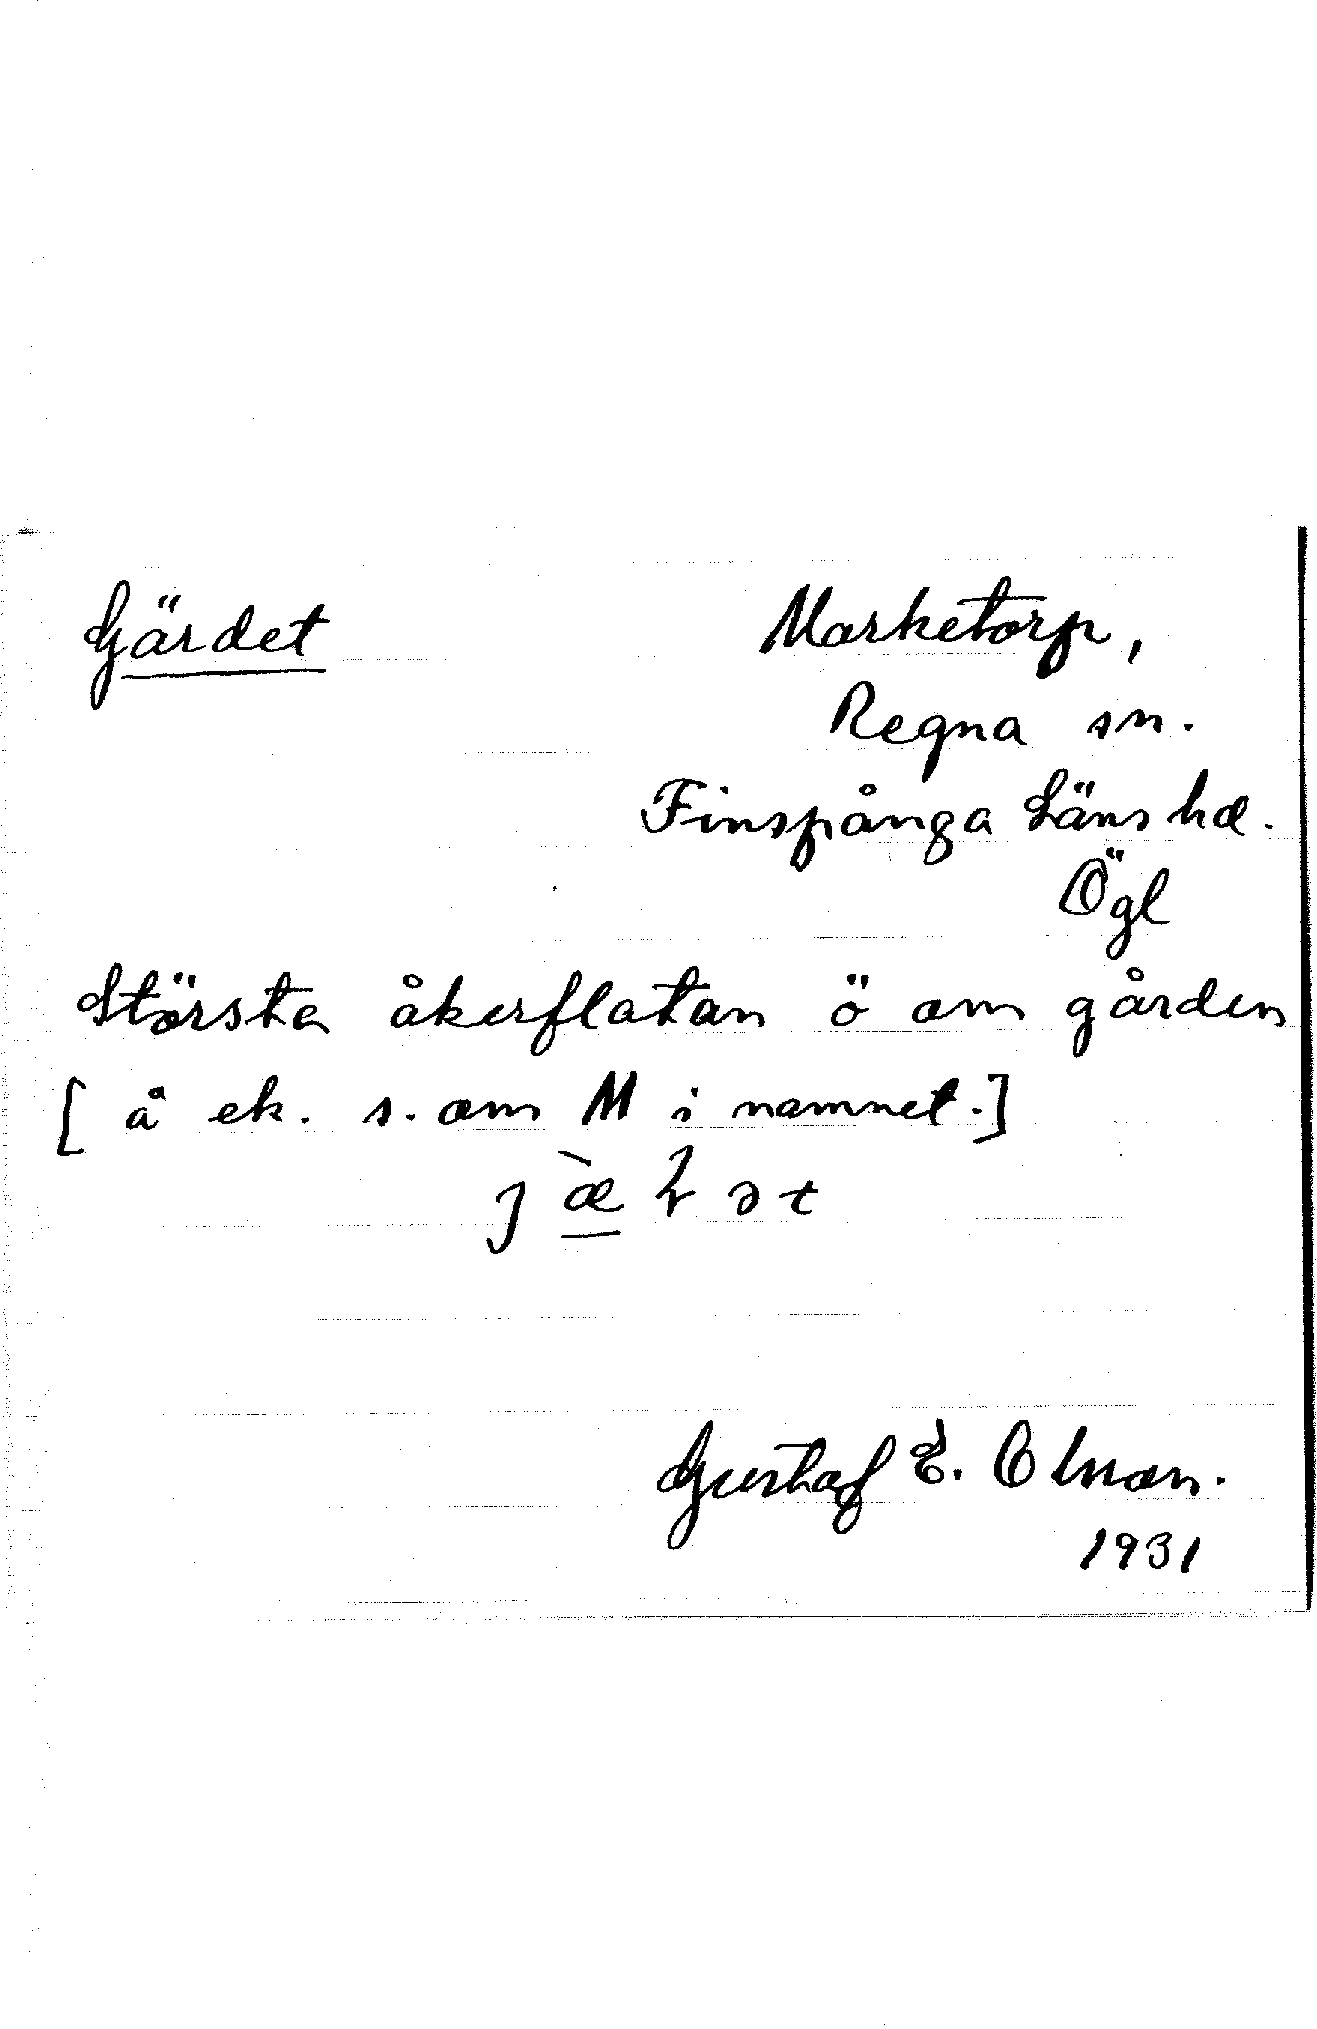 Gärdet
Marketorp,
Regna sn.
Finspånga Läns hd.
Ögl
Största åkerflatan ö om gården
[ å ek. s. om M i namnet.]
Gustaf E. Olsson.
1931